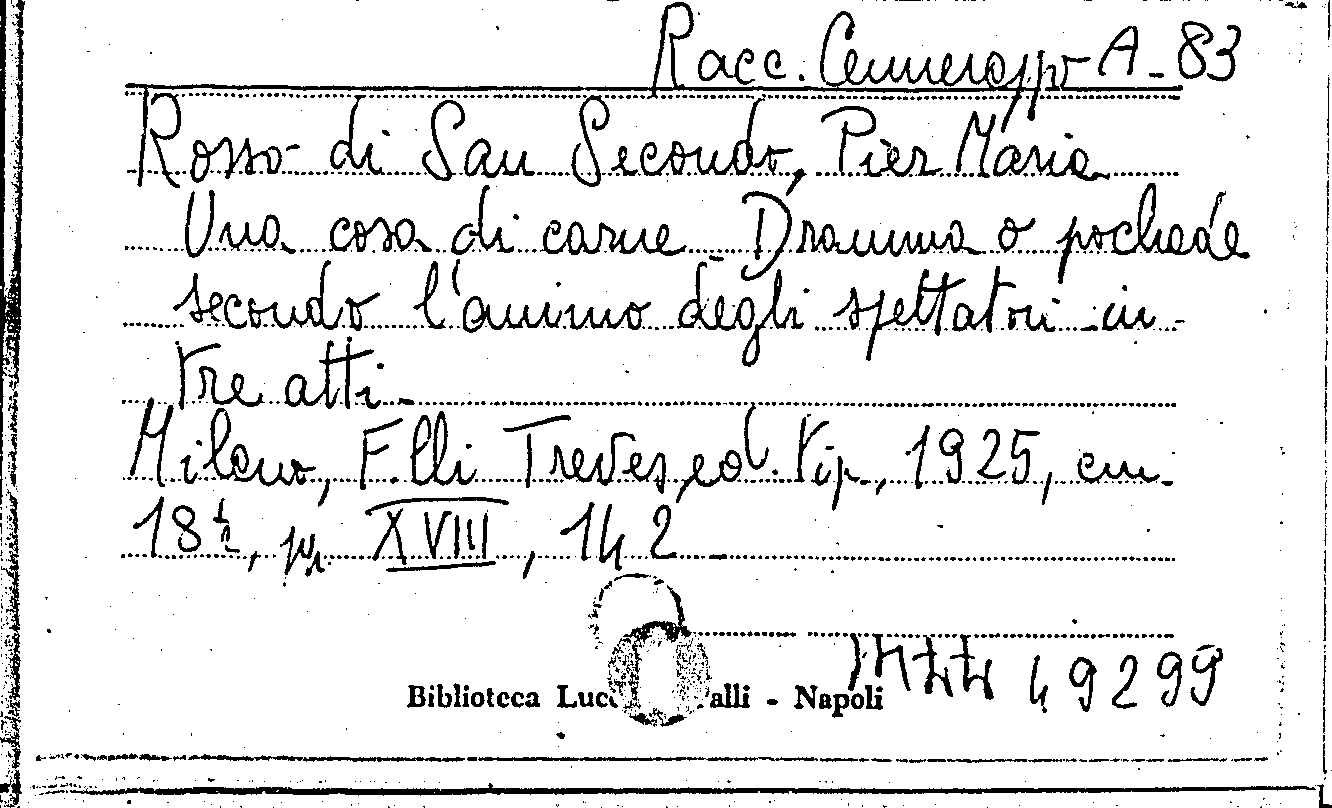 Racc. Cennerazzo A-83
Rosso di San Secondo, Pier Maria
Una cosa di carne Dramma o pochade
secondo l'animo degli spettatori in
tre atti-
Milano, F.lli Treves, ed. tip., 1925, cm.
18½, pp. XVIII, 142
49299
Biblioteca Luc alli - Napoli